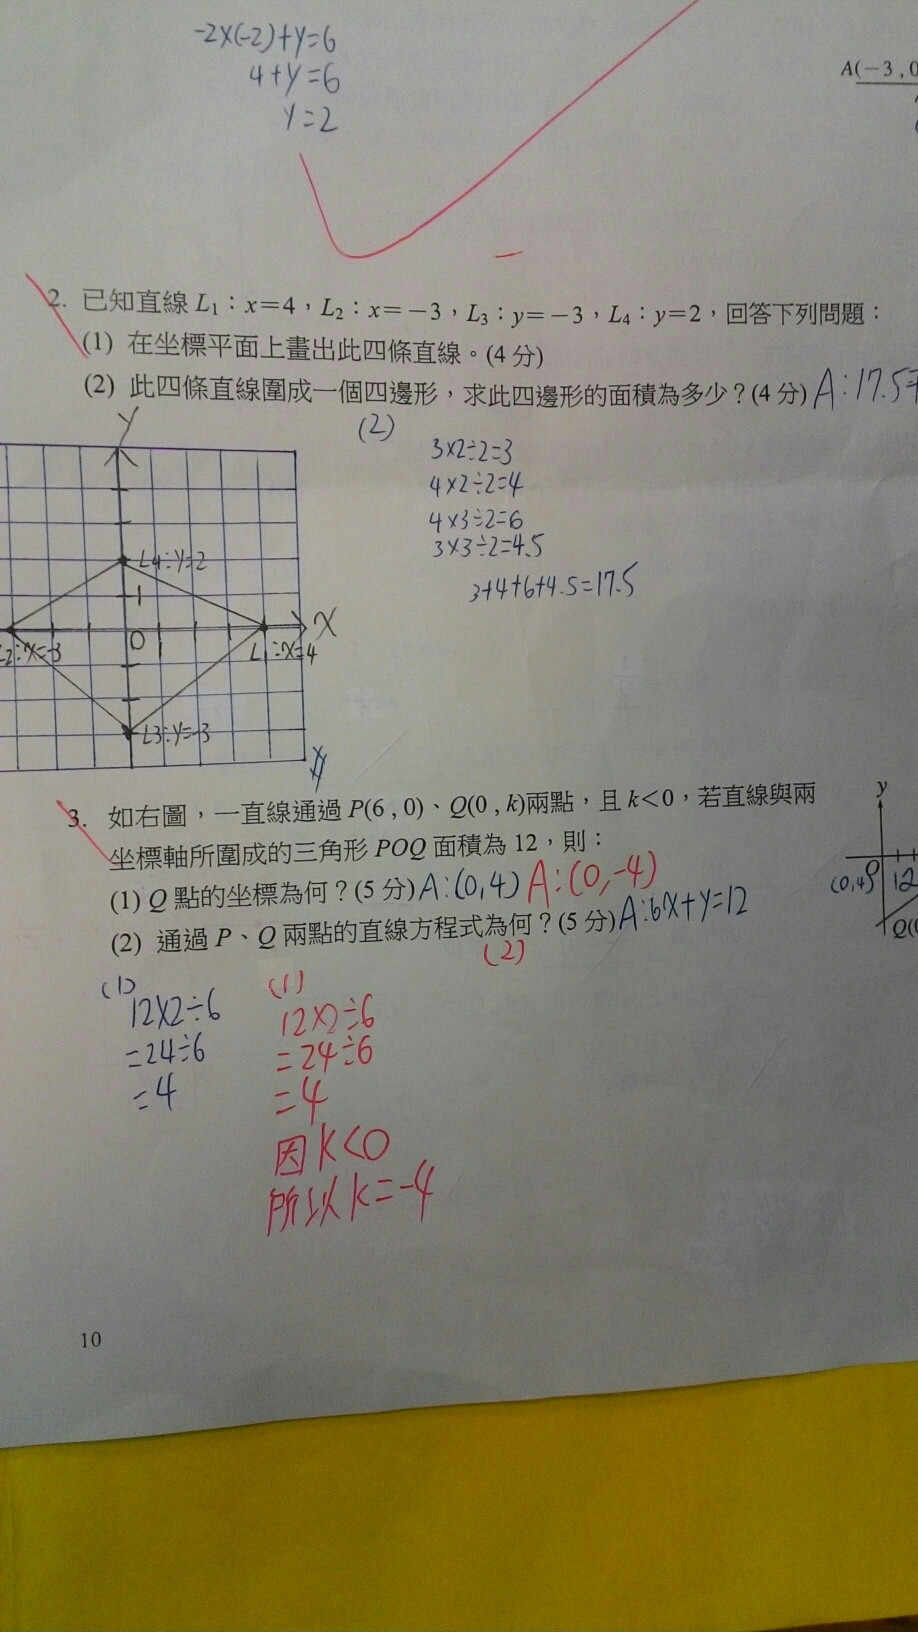 -2×(-2)+y=6
4+y=6
y=2
A(-3,0
2. 已知直線 L₁：x=4，L₂：x=-3，L₃：y=-3，L₄：y=2，回答下列問題：
(1) 在坐標平面上畫出此四條直線。(4 分)
(2) 此四條直線圍成一個四邊形，求此四邊形的面積為多少？(4 分) A:17.5
Y
(2)
3×2÷2=3
4×2÷2=4
4×3÷2=6
3×3÷2=4.5
3+4+6+4.5=17.5
L4:y=2
1
X
0 1
L2:x=-3
L1:x=4
L3:y=-3
3. 如右圖，一直線通過 P(6 , 0)、Q(0 , k)兩點，且 k<0，若直線與兩
坐標軸所圍成的三角形 POQ 面積為 12，則：
(1) Q 點的坐標為何？(5 分) A:(0,4) A:(0,-4)
(2) 通過 P、Q 兩點的直線方程式為何？(5 分) A:6x+y=12
(2)
y
O
(0,4) 12
Q(
(1)
12×2÷6
=24÷6
=4
(1)
12×2÷6
=24÷6
=4
因 k<0
所以 k=-4
10